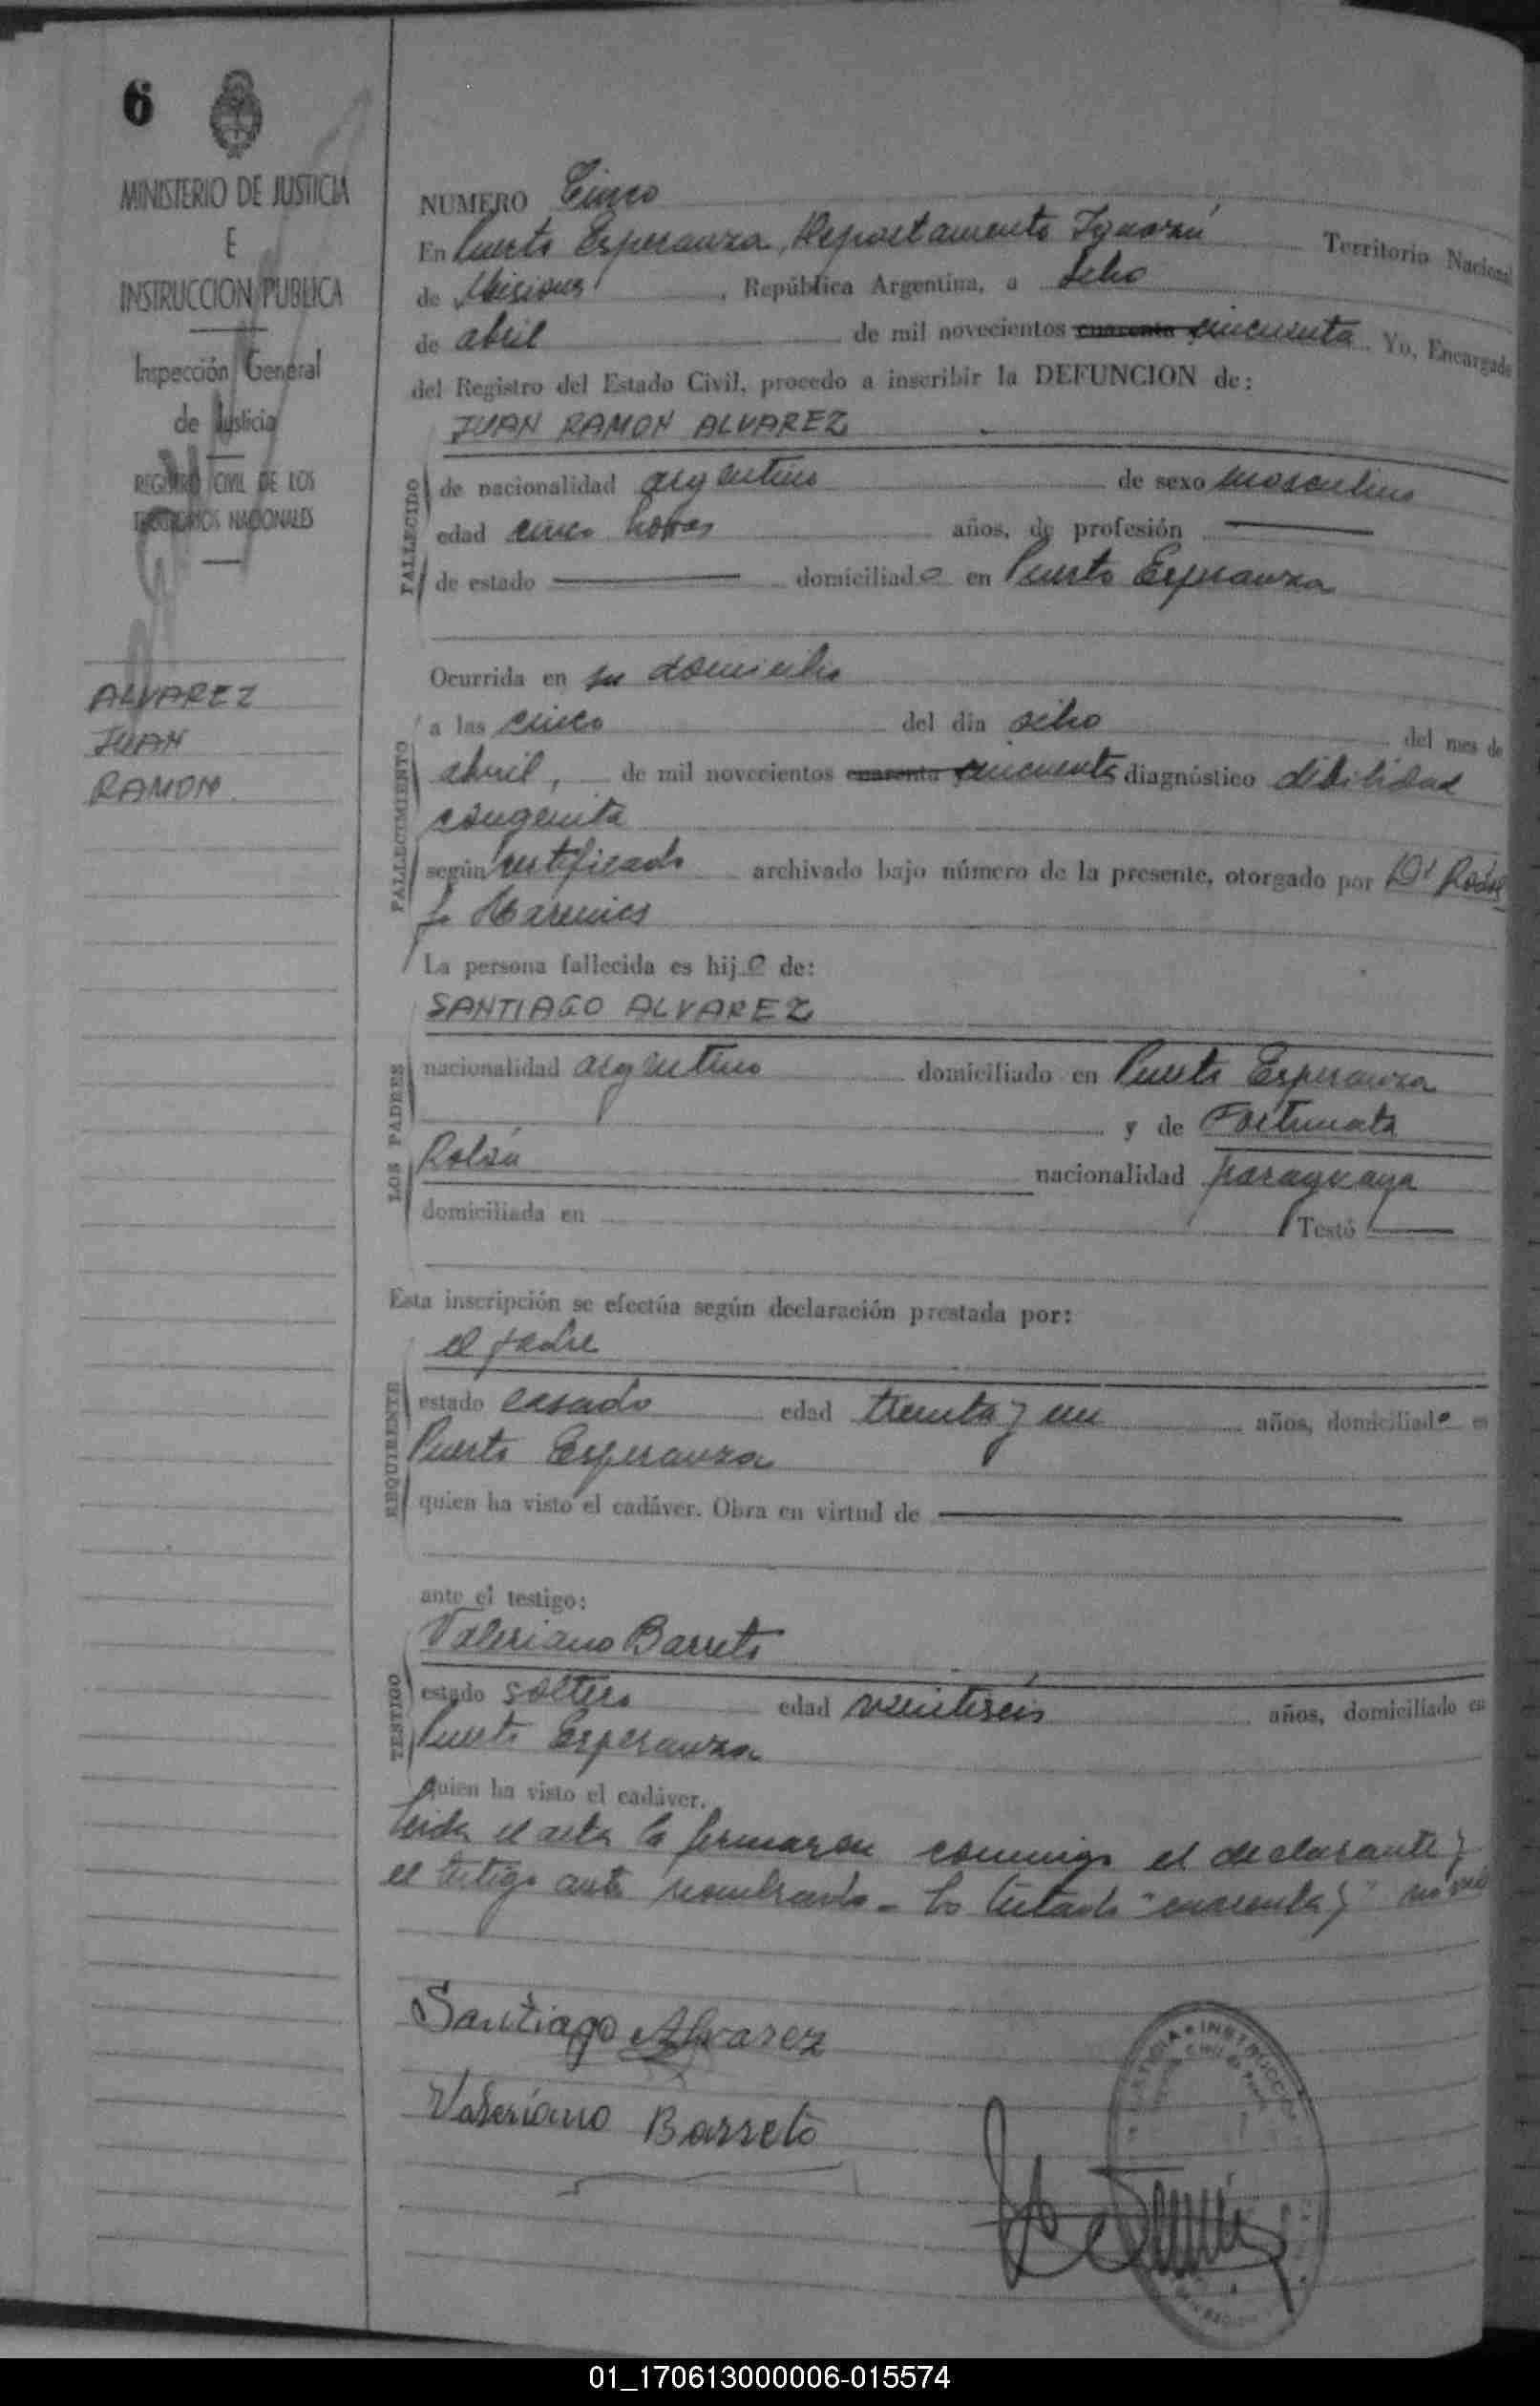 6
MINISTERIO DE JUSTICIA
E
INSTRUCCION PUBLICA
Inspección General
de Justicia
REGISTRO CIVIL DE LOS
TERRITORIOS NACIONALES
ALVAREZ
JUAN
RAMON
NUMERO Cinco
En Puerto Esperanza, Departamento Iguazú Territorio Nacional
de Misiones, República Argentina, a ocho
de abril de mil novecientos cuarenta cincuenta. Yo, Encargado
del Registro del Estado Civil, procedo a inscribir la DEFUNCION de:
JUAN RAMON ALVAREZ
FALLECIDO
de nacionalidad argentino de sexo masculino
edad cinco horas años, de profesión
de estado domiciliado en Puerto Esperanza
Ocurrida en su domicilio
FALLECIMIENTO
a las cinco del día ocho del mes de
abril, de mil novecientos cuarenta cincuenta diagnóstico debilidad
congenita
según certificado archivado bajo número de la presente, otorgado por Dr
La persona fallecida es hijo de:
SANTIAGO ALVAREZ
LOS PADRES
nacionalidad argentino domiciliado en Puerto Esperanza
y de Fortunata
Rolón nacionalidad paraguaya
domiciliada en Testó
Esta inscripción se efectúa según declaración prestada por:
el padre
REQUIRENTE
estado casado edad treinta y un años, domiciliado en
Puerto Esperanza
quien ha visto el cadáver. Obra en virtud de
ante el testigo:
Valeriano Barreto
TESTIGO
estado soltero edad veintiseis años, domiciliado en
Puerto Esperanza
quien ha visto el cadáver.
Leida el acta la firmaron conmigo el declarante y
el testigo ante nombrado - Lo testado "cuarenta y" no vale
Santiago Alvarez
Valeriano Barreto
01_170613000006-015574